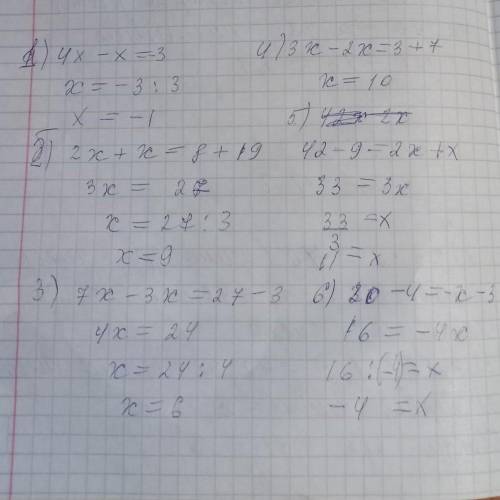 1) 4x - x = -3
x = -3 : 3
x = -1
2) 2x + x = 8 + 19
3x = 27
x = 27 : 3
x = 9
3) 7x - 3x = 27 - 3
4x = 24
x = 24 : 4
x = 6
4) 3x - 2x = 3 + 7
x = 10
5)
42 - 9 = 2x + x
33 = 3x
33/3 = x
11 = x
6) 20 - 4 = -x - 3
16 = -4x
16 : (-4) = x
-4 = x